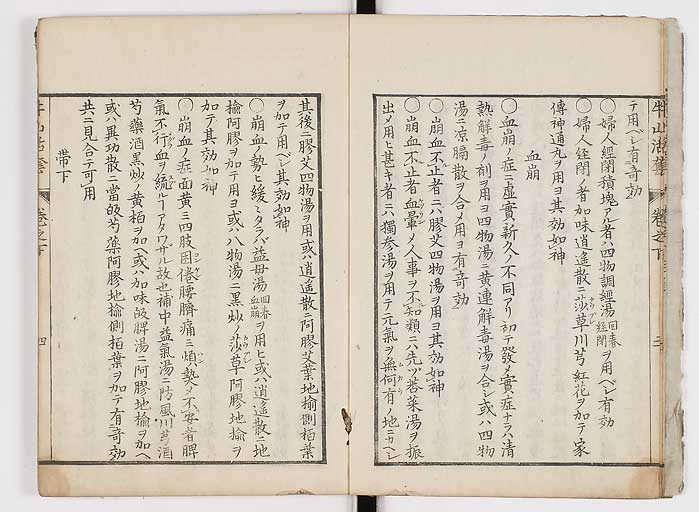 テ用ベシ有奇効
〇婦人經閉積塊アル者ハ四物調經湯回春經閉ヲ用ベシ有効
〇婦人經閉ノ者加味逍遙散ニ莎草川芎紅花ヲ加テ家
傳神通丸ヲ用ヨ其効如神
血崩
〇血崩ノ症ニ虚實新久ノ不同アリ初テ發メ實症ナラハ清
熱解毒ノ剤ヲ用ヨ四物湯ニ黄連解毒湯ヲ合シ或ハ四物
湯ニ涼膈散ヲ合メ用ヨ有奇効
〇崩血不止者ニハ膠艾四物湯ヲ用ヨ其効如神
〇崩血不止者血暈メ人事ヲ不知類ニハ先ツ茶湯ヲ振
出メ用ヒ甚キ者ニハ獨参湯ヲ用テ元氣ヲ無何有ノ地ニカヘシ
其後ニ膠艾四物湯ヲ用或ハ逍遙散ニ阿膠艾葉地楡側栢葉
ヲ加テ用ベシ其効如神
〇崩血ノ勢ヒ緩ミタラバ益母湯回春血崩ヲ用ヒ或ハ逍遙散ニ地
楡阿膠ヲ加テ用ヨ或ハ八物湯ニ黒炒ノ莎草阿膠地楡ヲ
加テ其効如神
〇崩血ノ症面黄ニ四肢困倦腰臍痛ミ煩熱メ不安者脾
氣不行血ヲ統ルヿアタワザル故也補中益氣湯ニ防風川芎酒
芍藥酒黒炒ノ黄栢ヲ加ヘ或ハ加味皈脾湯ニ阿膠地楡ヲ加ヘ
或ハ異功散ニ當皈芍藥阿膠地楡側栢葉ヲ加テ有奇効
共ニ見合テ可用
帯下
牛山活套
卷之下
四